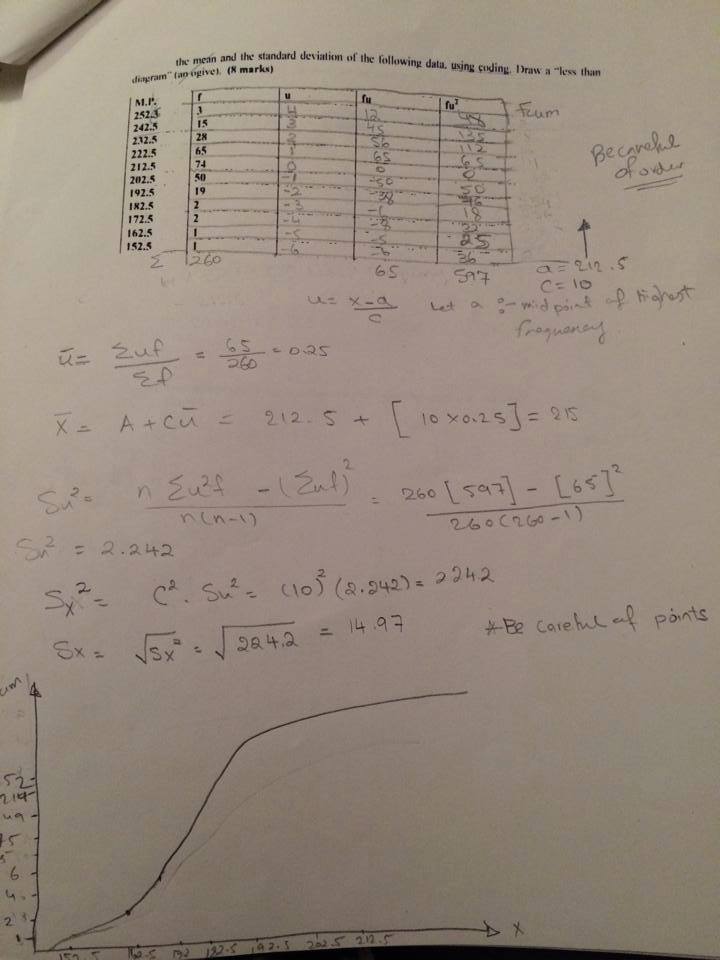 the mean and the standard deviation of the following data, using coding. Draw a "less than
diagram" (an ogive). (8 marks)
M.P. f u fu fu² Fcum
252.5 3 4 12 48
242.5 15 3 45 135
232.5 28 2 56 112
222.5 65 1 65 65
212.5 74 0 0 0
202.5 50 -1 -50 50
192.5 19 -2 -38 76
182.5 2 -3 -6 18
172.5 2 -4 -8 32
162.5 1 -5 -5 25
152.5 1 -6 -6 36
Σ 260 65 597
Be careful
of order
a = 212.5
C = 10
u = x-a / c Let a :- midpoint of highest
frequency.
ū = Σuf / Σf = 65 / 260 = 0.25
X̄ = A + Cū = 212.5 + [10 x 0.25] = 215
Su² = n Σu²f - (Σuf)² / n(n-1) = 260[597] - [65]² / 260(260-1)
Su² = 2.242
Sx² = C². Su² = (10)² (2.242) = 224.2
Sx = √Sx² = √224.2 = 14.97
*Be careful of points
um
52
214
49
75
6
4
2
152.5 162.5 192.5 202.5 212.5 X